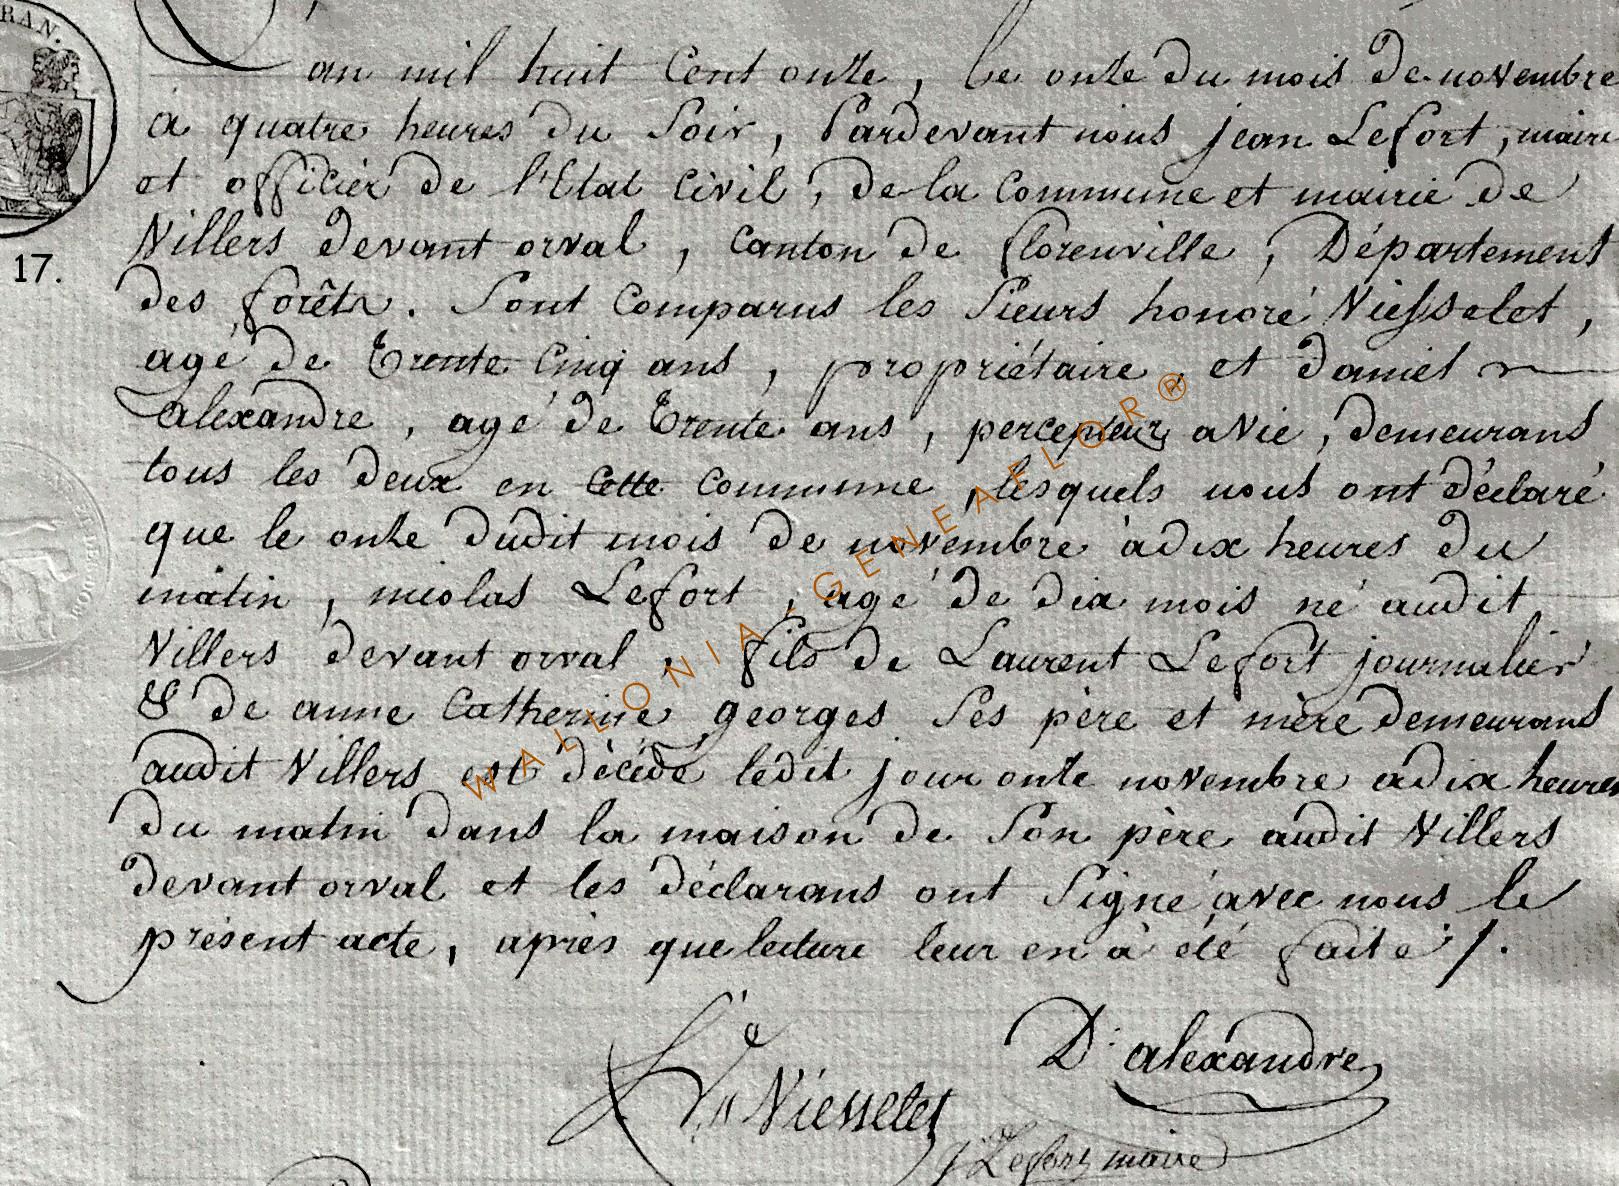 RAN.
L'an mil huit Cent onze, le onze du mois de novembre
a quatre heures du Soir, Pardevant nous jean Lefort, maire
et officier de l'Etat Civil, de la Commune et mairie de
Villers devant orval, Canton de florenville, Département
des forêts. Sont Comparus les Sieurs honoré Niesselet,
agé de Trente Cinq ans, propriétaire, et daniel
alexandre, agé de Trente ans, percepteur a Vie, demeurans
tous les deux en Cette Commune, lesquels nous ont déclaré
que le onze dudit mois de novembre à dix heures du
matin, nicolas Lefort, agé de dix mois né audit
Villers devant orval, fils de Laurent Lefort journalier
& de anne Catherine georges Ses père et mère demeurans
audit Villers est décédé ledit jour onze novembre a dix heures
du matin dans la maison de Son père audit Villers
devant orval et les déclarans ont Signé avec nous le
présent acte, après que lecture leur en à été faite /.
17.
WALLONIA-GENEAFLOR®
D. alexandre
Niesselet
J Lefort maire